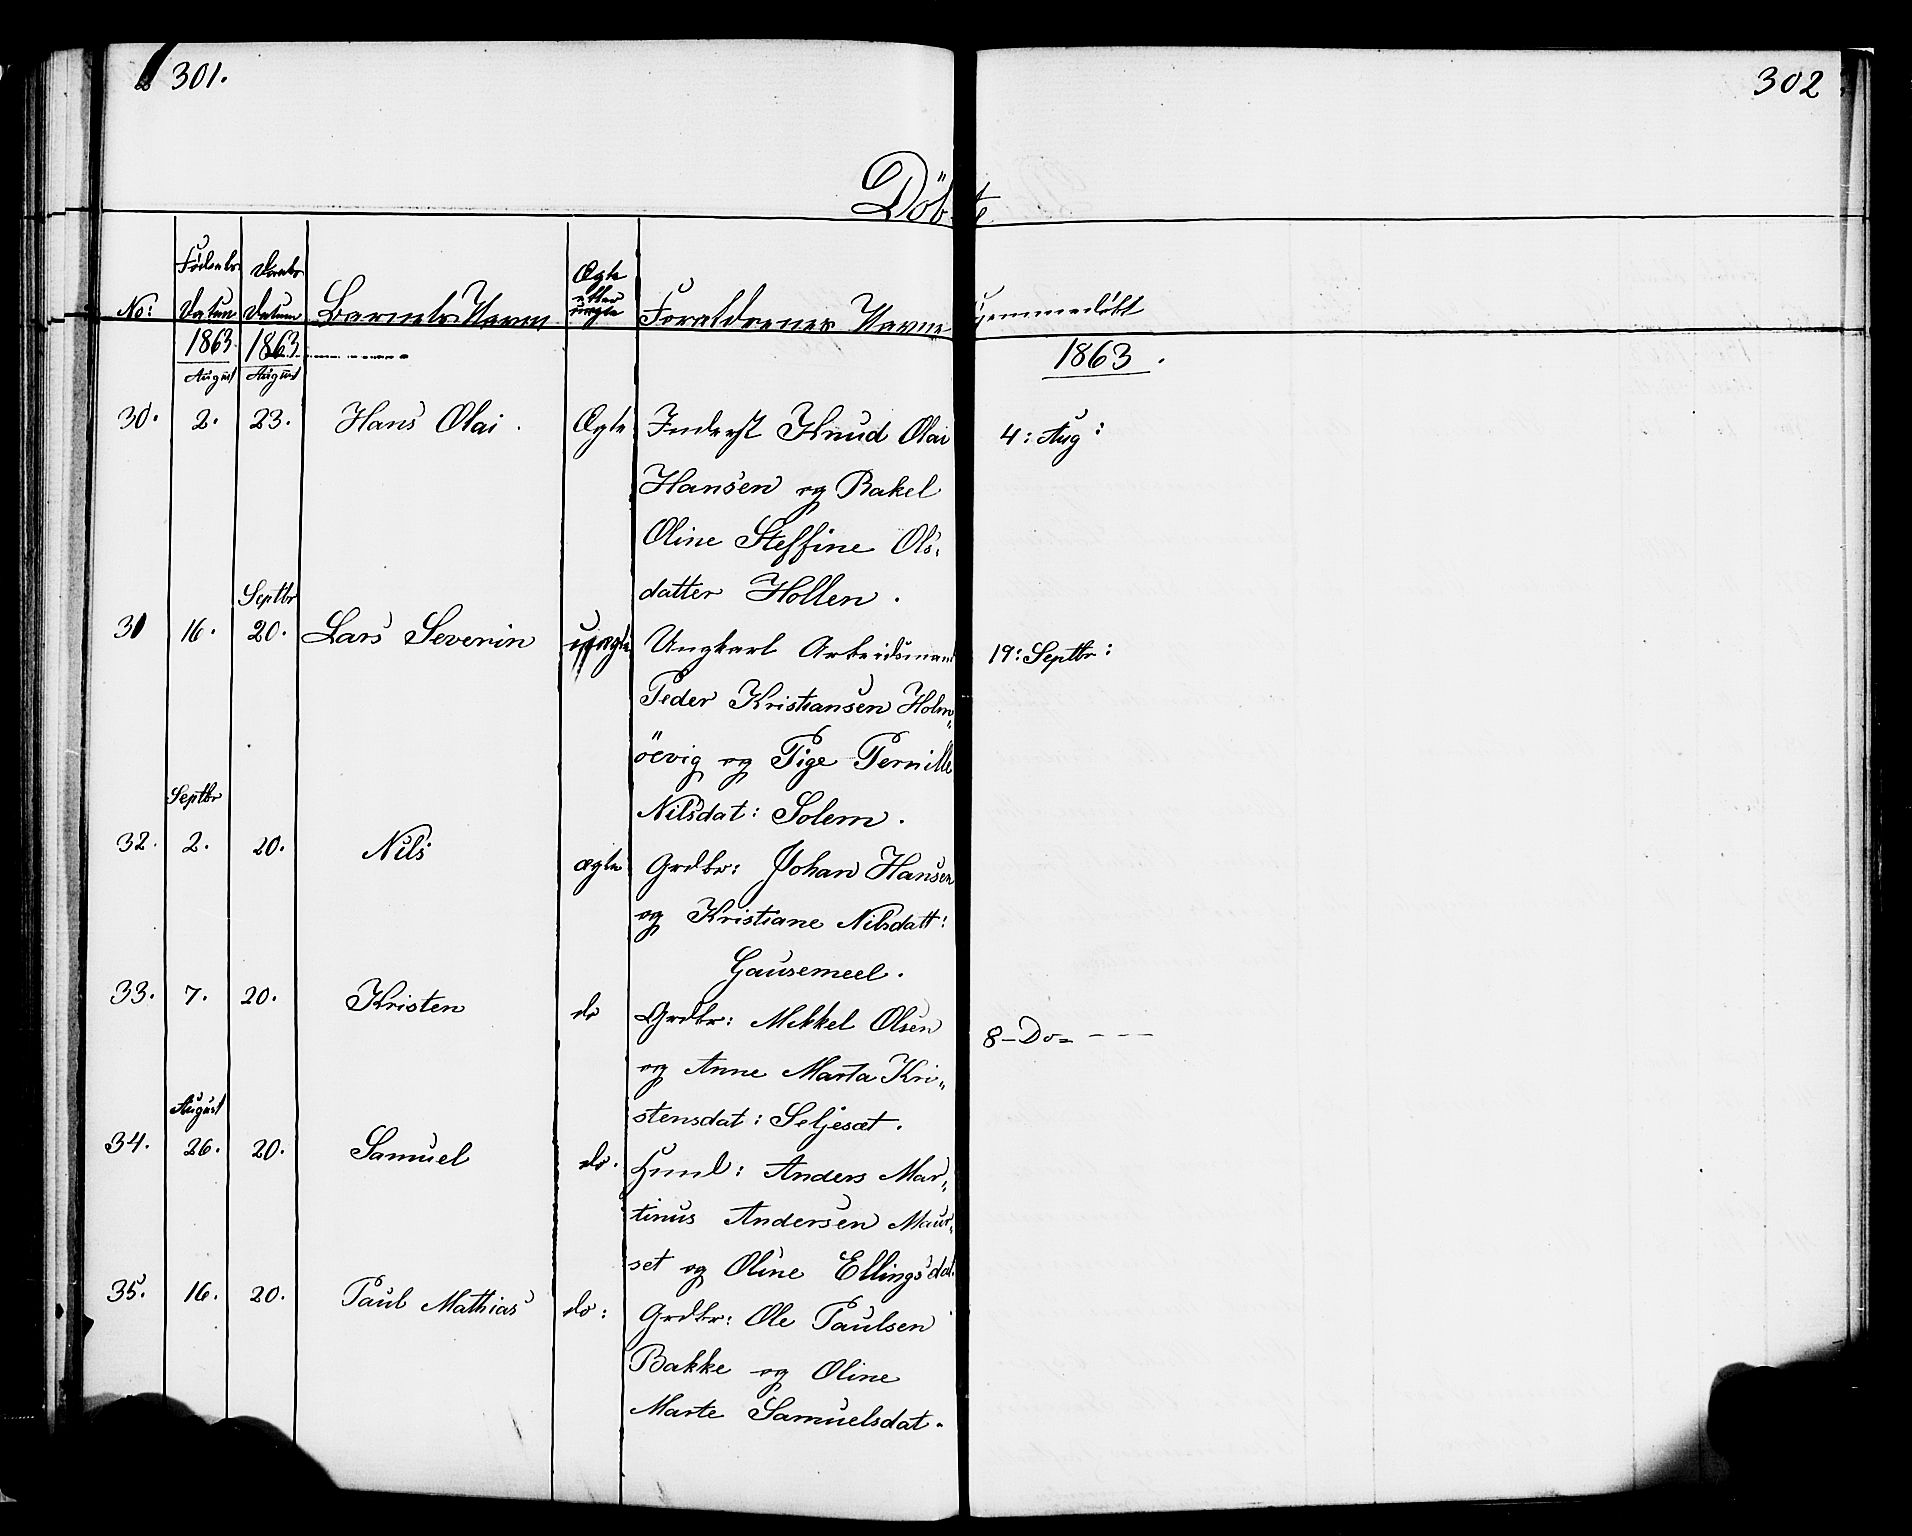 301.
302
Döbte
No:
Fødsels Datum
Daabs Datum
Barnets Navn
Ægte eller uægte
Forældrenes Navne
Hjemmedøbt
1863. 1863 1863.
August August
30. 2. 23. Hans Olai. Ægte Inderst Knud Olai 4: Aug:
Hansen og Rakel
Oline Steffine Ols:
datter Hollen.
Septbr
31 16. 20. Lars Severin uægte Ungkarl Arbeidsmand 19: Septbr:
Peder Kristiansen Holm„
öevig og Pige Pernille
Septbr
Nilsdat: Solem.
32. 2. 20. Nils ægte Grdbr: Johan Hansen
og Kristiane Nilsdatt:
Gausemeel.
33. 7. 20. Kristen do Grdbr: Mikkel Olsen
8 - Do = - - -
og Anne Marta Kri„
August
stensdat: Seljesæt.
34. 26. 20. Samuel do. Huusm: Anders Mar„
tinus Andersen Maur„
set og Oline Ellingsdat.
35. 16. 20. Paul Mathias do: Grdbr: Ole Paulsen
Bakke og Oline
Marte Samuelsdat.